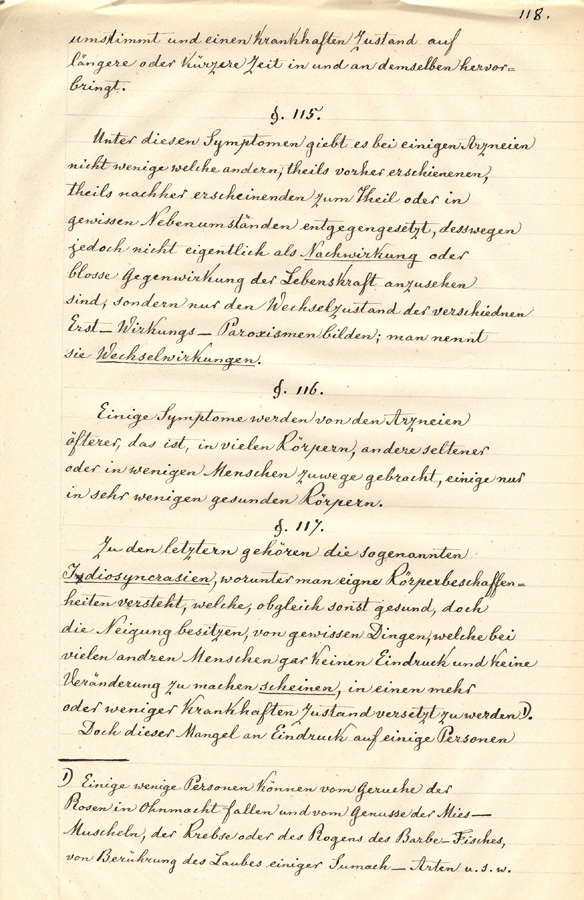 118.
umstimmt und einen krankhaften Zustand auf
längere oder kürzere Zeit in und an demselben hervor=
bringt.
§. 115.
Unter diesen Symptomen giebt es bei einigen Arzneien
nicht wenige welche andern, theils vorher erschienenen,
theils nachher erscheinenden zum Theil oder in
gewissen Nebenumständen entgegengesetzt, desswegen
jedoch nicht eigentlich als Nachwirkung oder
blosse Gegenwirkung der Lebenskraft anzusehen
sind, sondern nur den Wechselzustand der verschiednen
Erst-Wirkungs-Paroxismen bilden; man nennt
sie Wechselwirkungen.
§. 116.
Einige Symptome werden von den Arzneien
öfterer, das ist, in vielen Körpern, andere seltener
oder in wenigen Menschen zuwege gebracht, einige nur
in sehr wenigen gesunden Körpern.
§. 117.
Zu den letztern gehören die sogenannten
Idiosyncrasien, worunter man eigne Körperbeschaffen=
heiten versteht, welche, obgleich sonst gesund, doch
die Neigung besitzen, von gewissen Dingen, welche bei
vielen andren Menschen gar keinen Eindruck und keine
Veränderung zu machen scheinen, in einen mehr
oder weniger krankhaften Zustand versetzt zu werden 1).
Doch dieser Mangel an Eindruck auf einige Personen
1) Einige wenige Personen können vom Geruche der
Rosen in Ohnmacht fallen und vom Genusse der Mies-
Muscheln, der Krebse oder des Rogens des Barbe-Fisches,
von Berührung des Laubes einiger Sumach-Arten u.s.w.